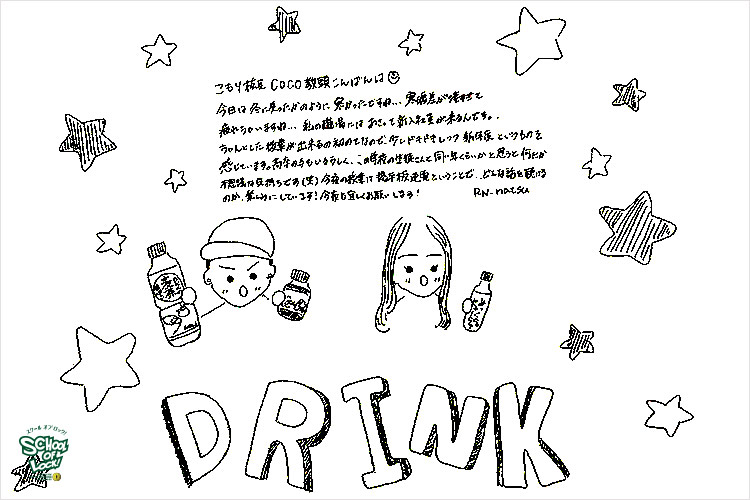 こもり校長 COCO教頭こんばんは☺
今日は冬に戻ったかのように寒かったですね… 寒暖差が凄すぎて
疲れちゃいますね… 私の職場には あさって新入社員が来るんです。
ちゃんとした後輩が出来るの初めてなので、少しドキドキしつつ 新体感 というものを
感じています。高卒の子もいるらしく、この時夜の生徒さんと同い年くらいかと思うと何だか
不思議な気持ちです(笑) 今夜の授業は 掲示板逆電ということで、どんな話を聴ける
のか、楽しみにしています！今夜も宜しくお願いします！
RN-natsu
DRINK
スクール オブ ロック!
SCHOOL
OF
LOCK!